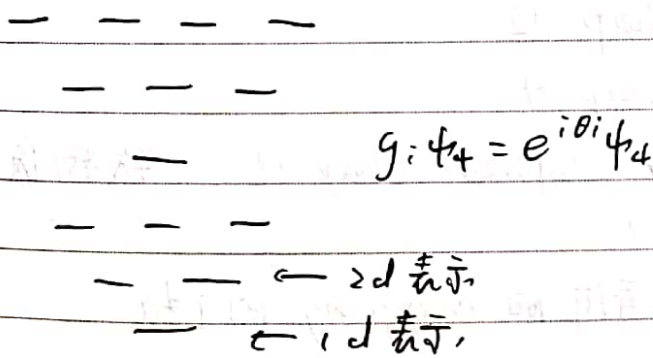 gᵢψ₄ = e^{iθᵢ}ψ₄
← 2d 表示
← 1d 表示,